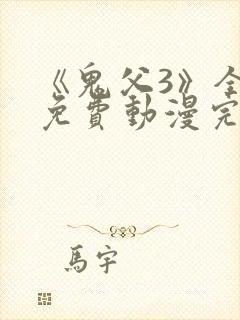 《鬼父3》全
免費動漫完
馬宇